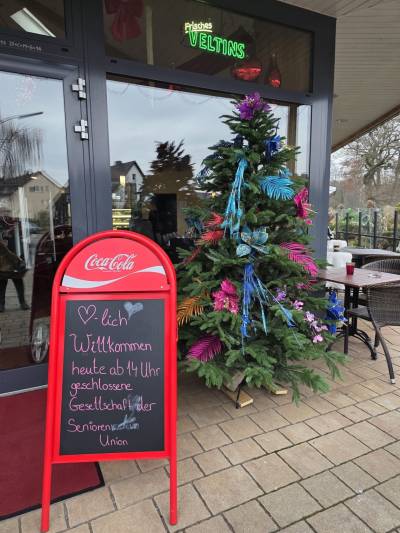 Frisches
VELTINS
Coca-Cola
♡-lich
Willkommen
heute ab 14 Uhr
geschlossene
Gesellschaft der
Senioren
Union